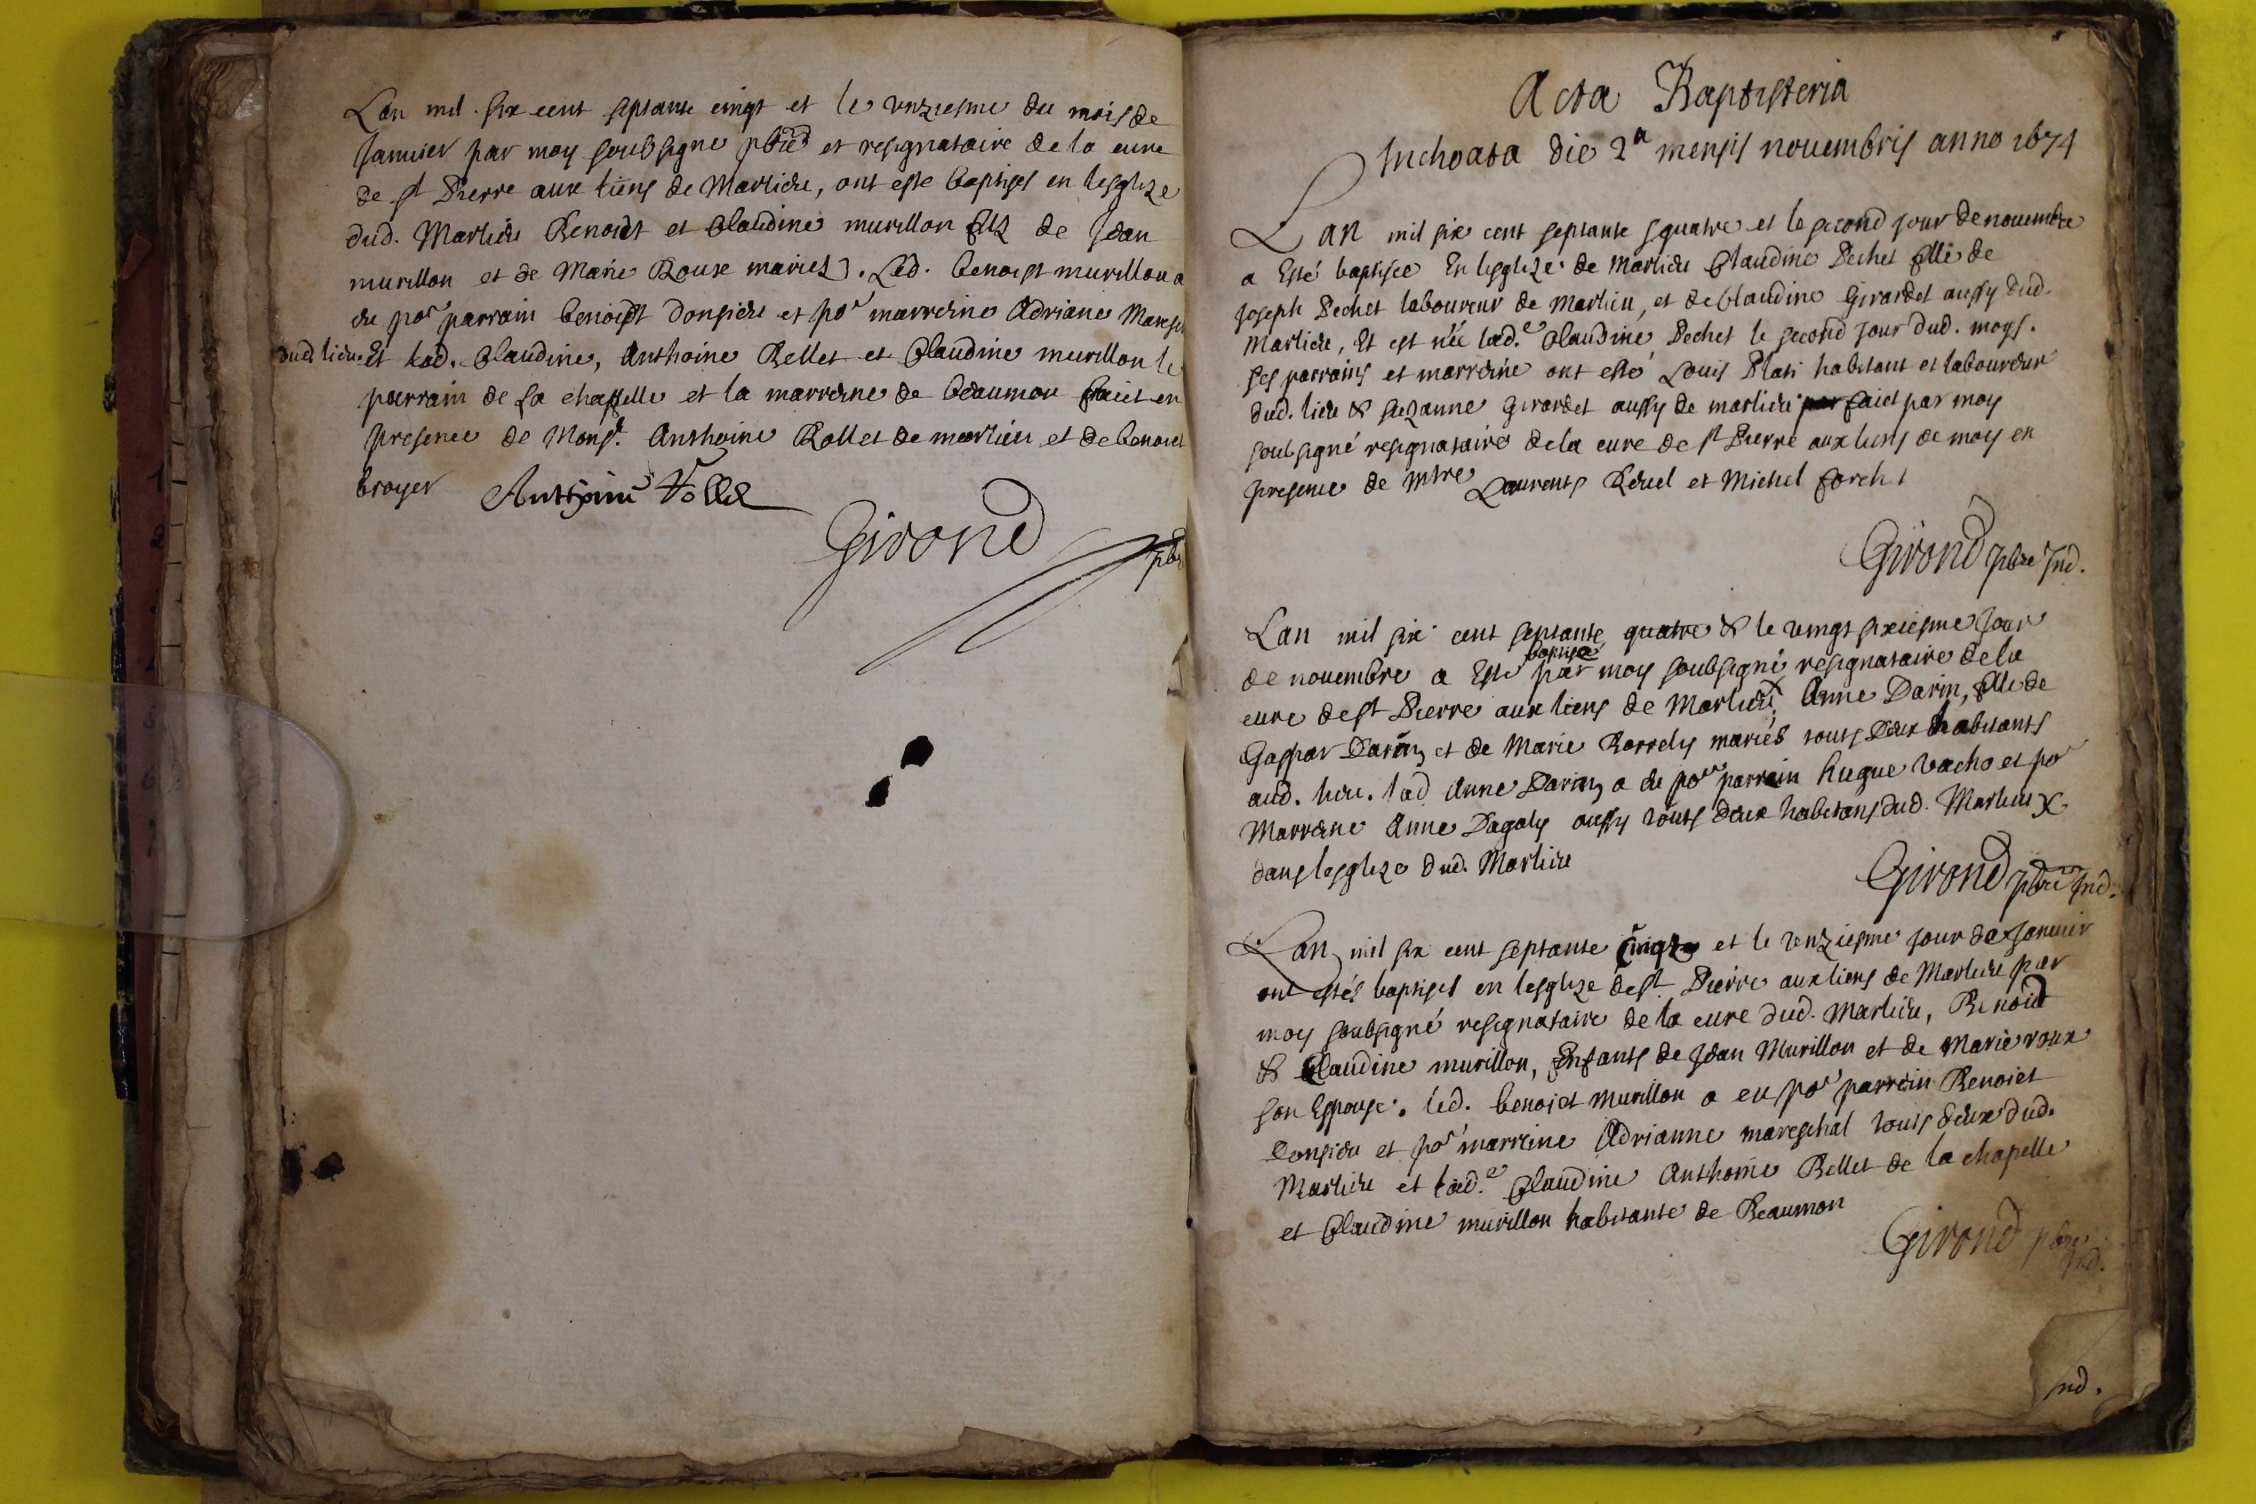 Lan mil six cent septante cinqt et le unziesme du mois de
Januier par moy soubsigne pbre et resignataire de la cure
de st Pierre aux liens de Marlieu, ont esté baptises en lesglize
dud. Marlieu Benoidt et Claudine murillon filz de Jean
murillon et de Marie Roux mariez. Led. benoist murillon a
eu por parrain benoist donsieu et por marreine Adriane Maresch
dud. lieu. Et lad. Claudine, Anthoine Rellet et Claudine murillon le
parrain de La chapelle et la marreine de beaumon faict en
presence de Monsr. Anthoine Rollet de marlieu et de benoict
broyer
Anthoine Rollet
Girond pbre
Acta Baptisteria
Inchoata die 2a mensis nouembris anno 1674
Lan mil six cent septante quatre et le second jour de nouembre
a Esté baptisée En lesglize de Marlieu Claudine Pechet fille de
Joseph Pechet laboureur de Marlieu, et de Claudine Girardet aussy dud.
Marlieu, Et est née lad.e Claudine Pechet le second jour dud. moys.
Ses parrains et marreine ont esté Louis Plati habitant et laboureur
dud. lieu & Suzanne Girardet aussy de marlieu par faict par moy
soubsigné resignataire de la cure de st Pierre aux liens de moy en
presence de mtre Laurents Reuel et Michel
Girond pbre Ind.
Lan mil six cent septante quatre & le vingt sixiesme jour
de nouembre a Esté baptisé par moy soubsigné resignataire de la
cure de st Pierre aux liens de Marlieu x Anne Darin, fille de
Gaspar Darin et de Marie mariés touts deux habitants
aud. lieu. lad Anne Darin a eu por parrain hugue vacho et por
Marreine Anne Dagaly aussy touts deux habitans dud. Marlieu x
dans lesglize dud. Marlieu
Girond pbre Ind.
Lan mil six cent septante cinq et le unziesme jour de Januier
ont estés baptises en lesglize de st Pierre aux liens de Marlieu par
moy soubsigné resignataire de la cure dud. Marlieu, Benoict
& Claudine murillon, Enfants de Jean Murillon et de Marie roux
son Espouse. led. benoict Murillon a eu por parrein Benoict
Donsieu et por marreine Adrianne mareschal touts deux dud.
Marlieu et lad.e Claudine Anthoine Rellet de la chapelle
et Claudine murillon habitante de Beaumon
Girond pbre
Ind.
Ind.